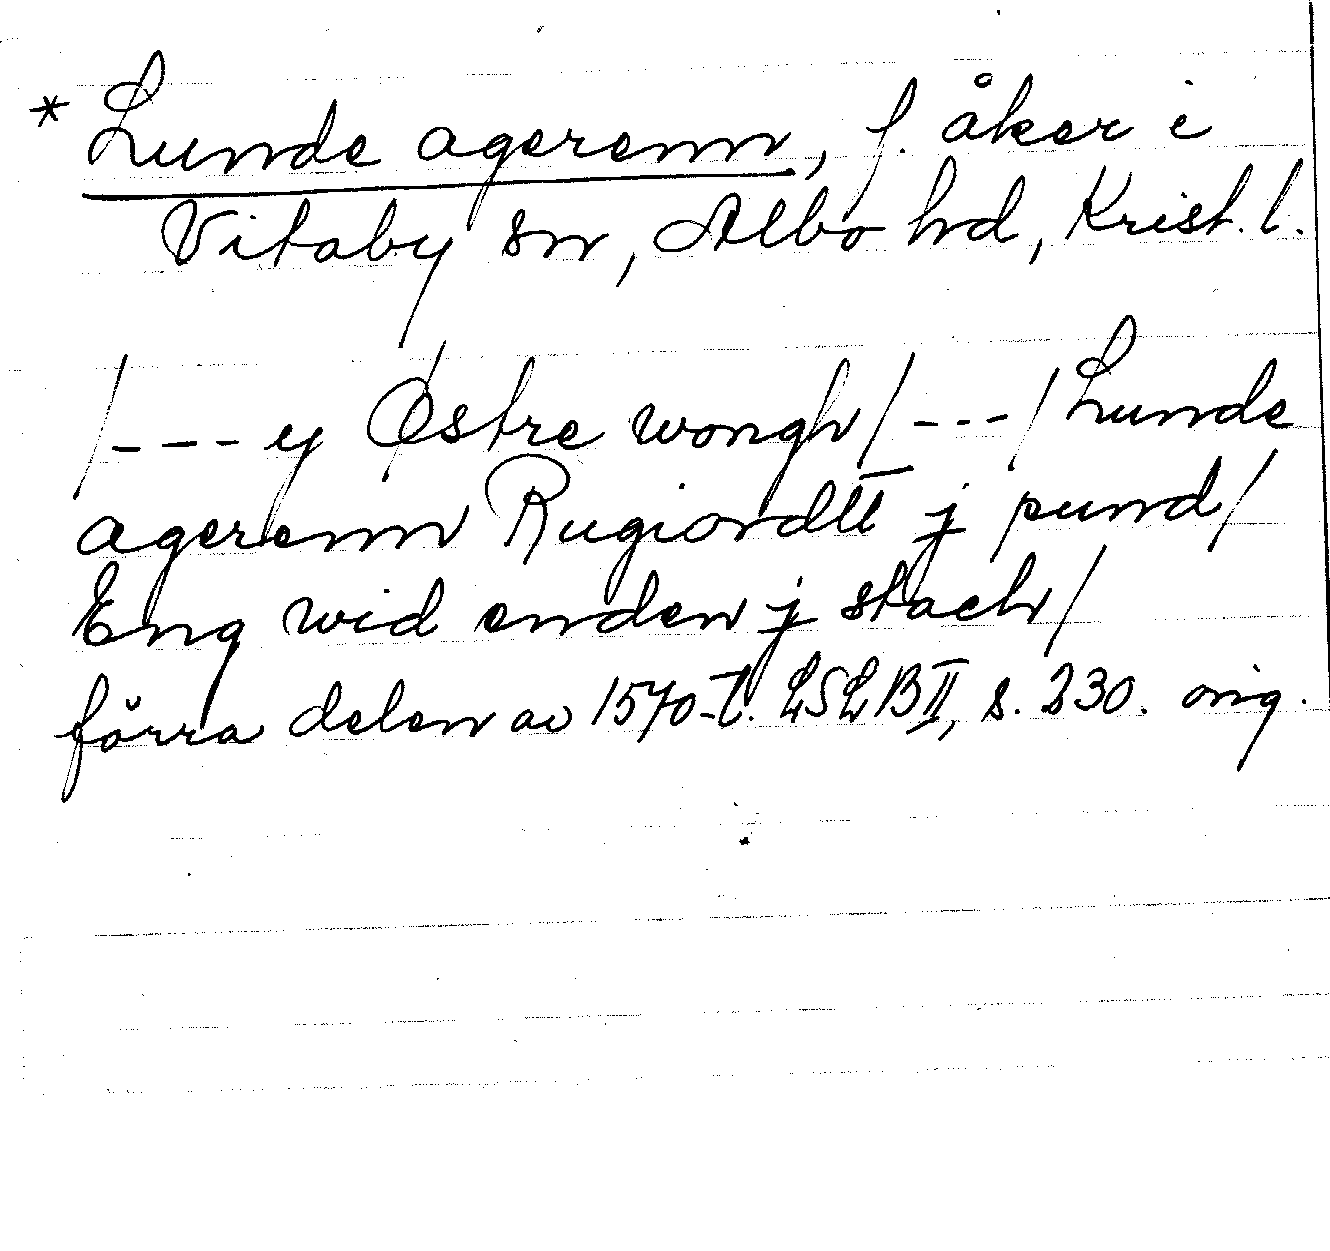 * Lunde agerenn, f. åker i
Vitaby sn, Albo hd, Krist. l.
/---y Østre wongh/---/Lunde
agerenn Rugiordtt j pund/
Eng wid enden j stach/
förra delen av 1570-t. LSLB II, s. 230. orig.